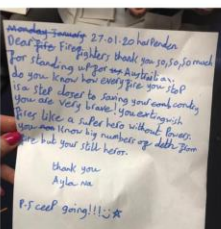 Monday January 27-01-20 harpenden
Dear fire Fire fighters thank you so, so, so much
for standing up for Austrilia.
do you know how every fire you stop
is a step closer to saving your country
you are very brave! you extinguish
fires like a super hero without powers.
you know big numbers of deth from
fire but your still heros.
thank you
Ayla
P.S ceep going!!!